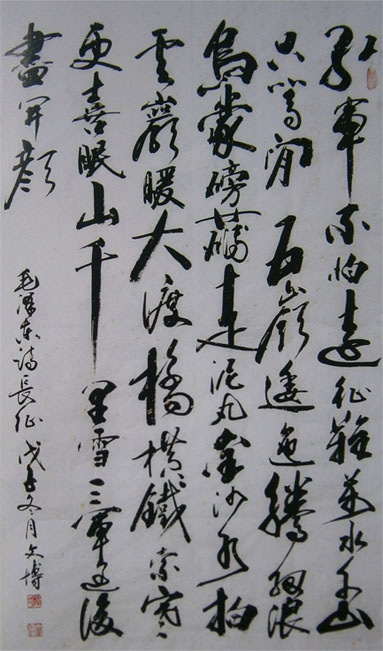 紅軍不怕遠征難萬水千山
只等閒五嶺逶迤騰細浪
烏蒙磅礴走泥丸金沙水拍
雲巖暖大渡橋橫鐵索寒
更喜眠山千里雪三軍過後
盡開顏
毛澤東詩長征 戊子冬月文博